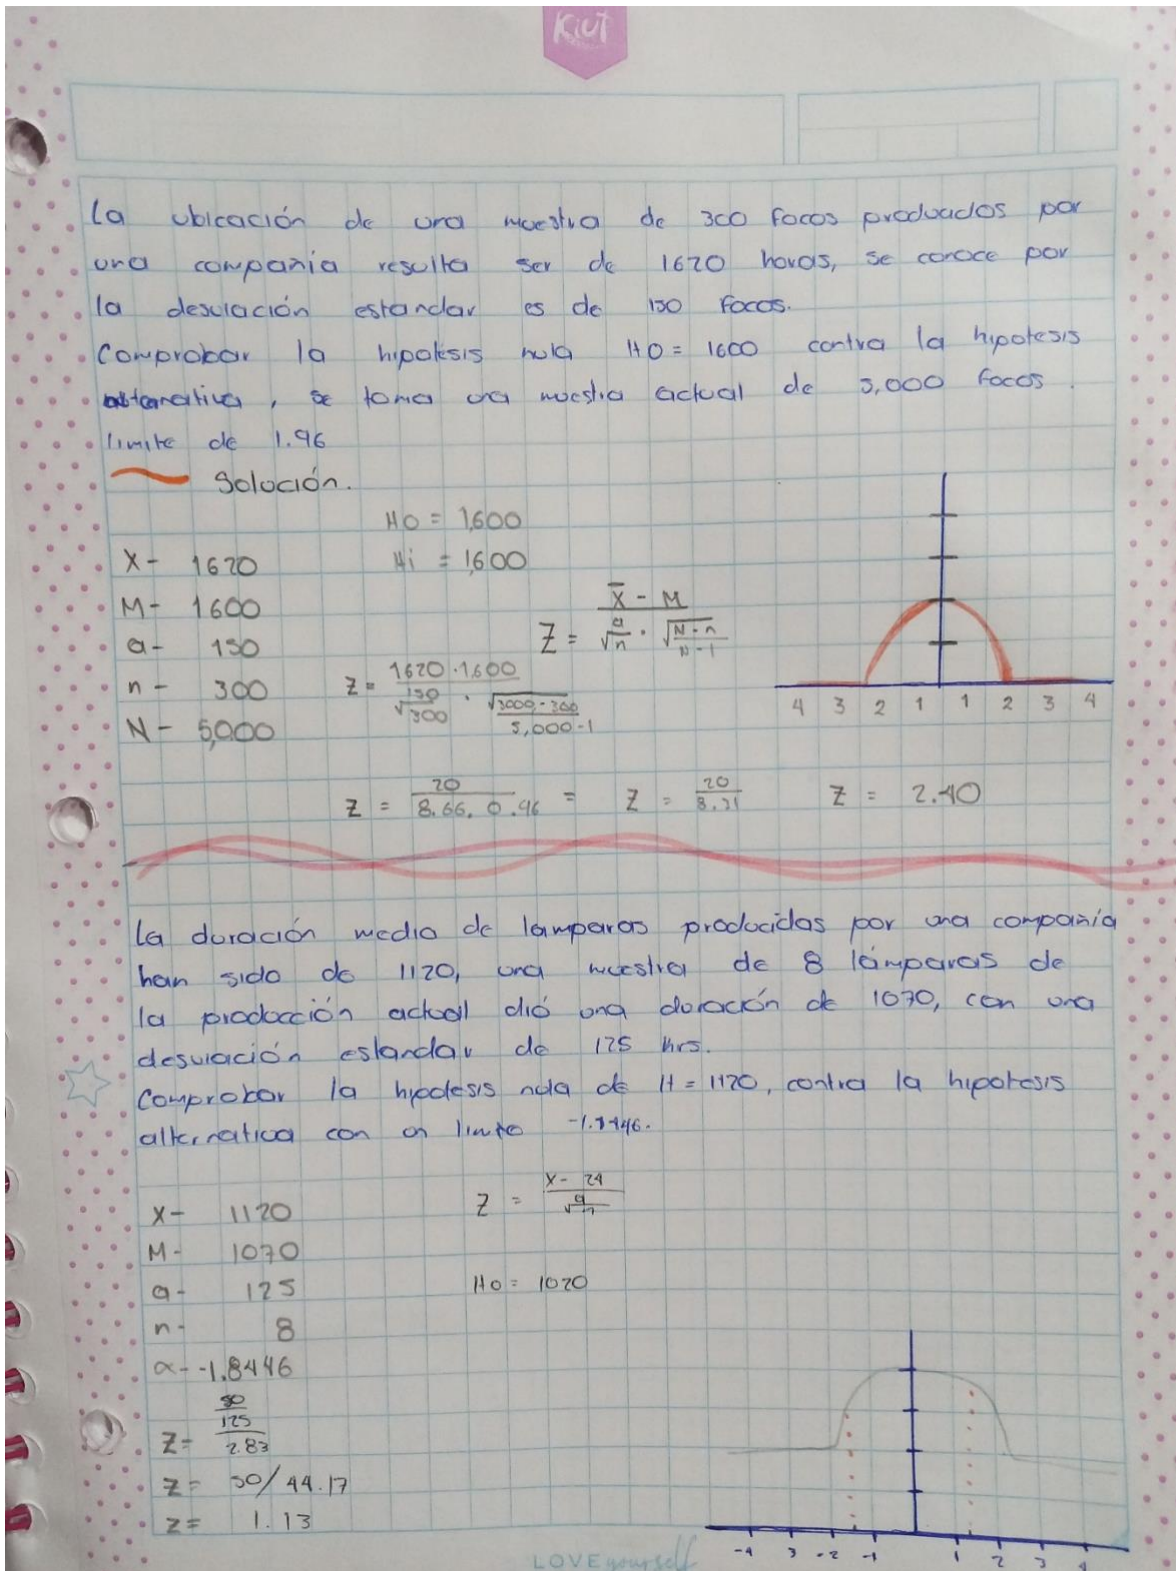 Kiut
La ubicación de una muestra de 300 focos produados por
una compañia resulta ser de 1620 horas, se conoce por
la desviación estandar es de 150 focos.
Comprobar la hipotesis nula H0 = 1600 contra la hipotesis
alternativa, se toma una muestra actual de 5,000 focos.
limite de 1.96
Solución.
H0 = 1,600
Hi = 1,600
X - 1620
M - 1600
a - 150
n - 300
N - 5,000
Z = X̄ - M / a/√n · √N - n / N - 1
Z = 1620 · 1,600 / 150/√300 · √5000 - 300 / 5,000 - 1
4 3 2 1 1 2 3 4
Z = 20 / 8.66. 0.96 = Z = 20 / 8.31 Z = 2.40
La duración media de lamparas producidas por una compañia
han sido de 1120, una muestra de 8 lámparas de
la producción actual dió una duración de 1070, con una
desviación estandar de 125 hrs.
Comprobar la hipotesis nula de H = 1120, contra la hipotesis
alternativa con un limite
X - 1120
M - 1070
a - 125
n - 8
α - -1.8446
Z = X - 24 / a/√n
H0 = 1020
Z = 50 / 125 / 2.83
Z = 50/44.17
Z = 1.13
-4 3 -2 -1 1 2 3 4
LOVE yourself